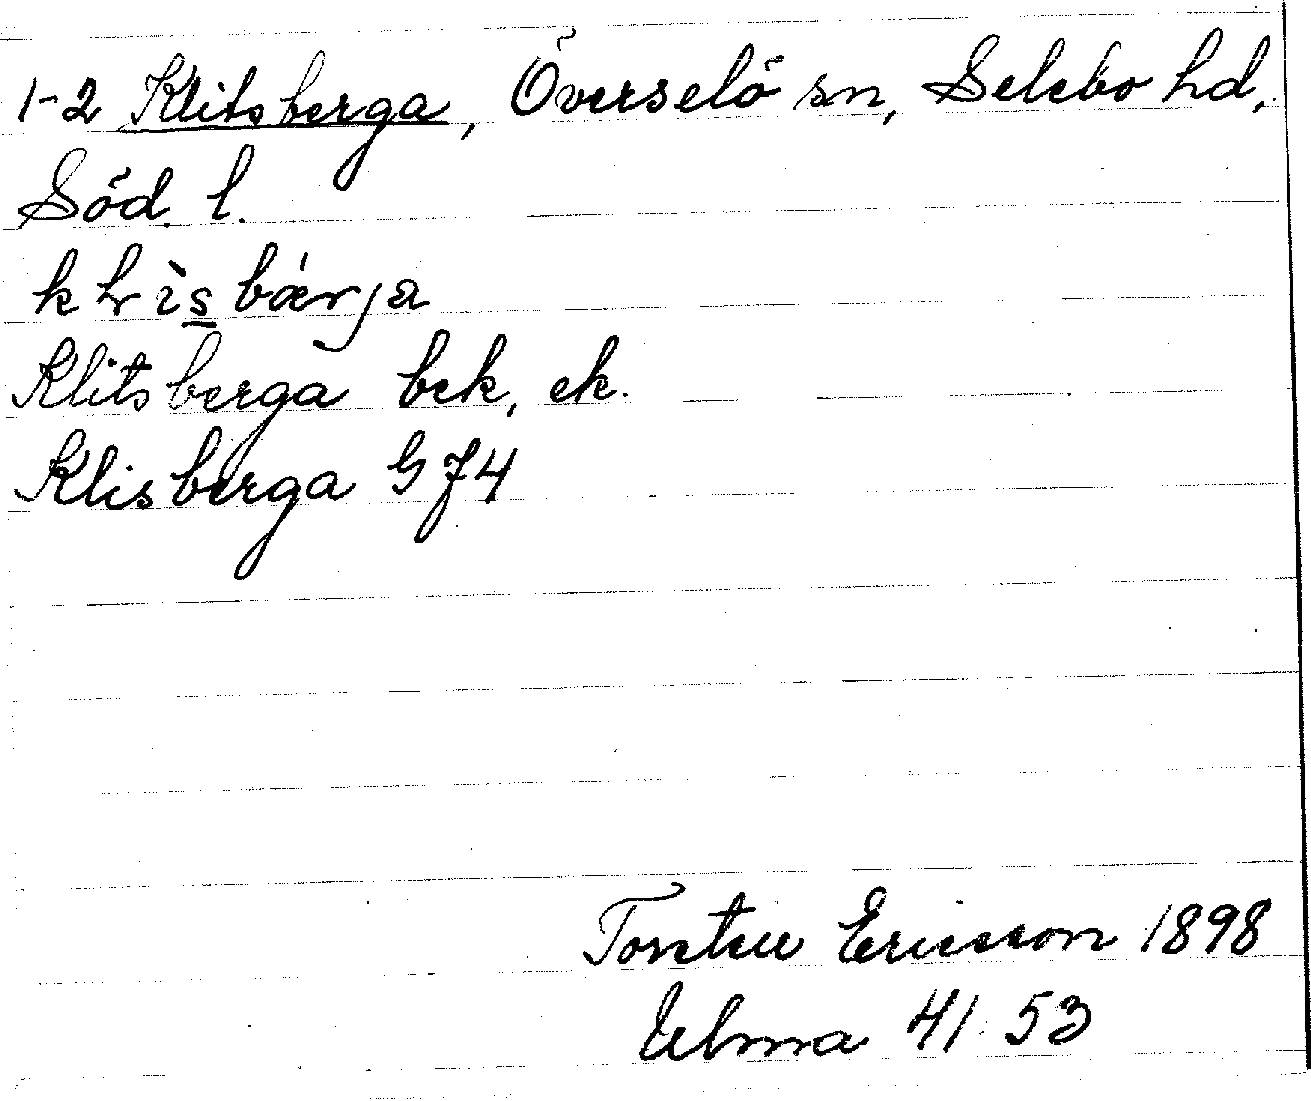 1-2 Klitsberga, Överselö sn, Selebo hd,
Söd. l.
klrìsbárja
Klitsberga bek, ek.
Klisberga G J4
Torsten Ericsson 1898
Ulma 41:53